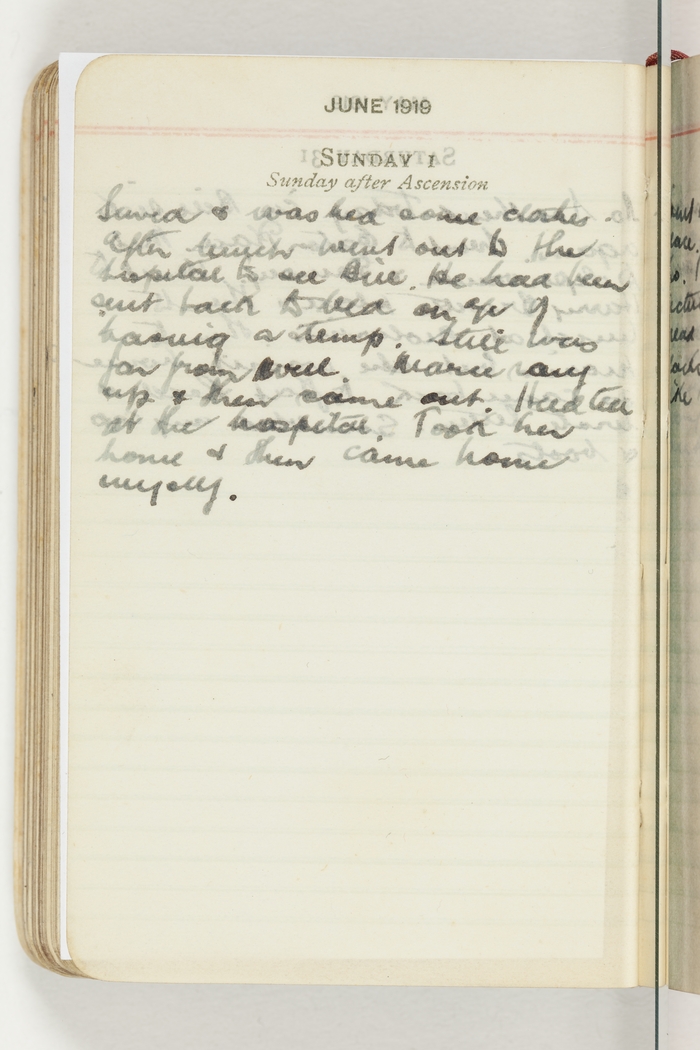 JUNE 1919
SUNDAY 1
Sunday after Ascension
& washed some clothes.
After lunch went out to the
hospital to see Bill. He had been
sent back to bed on a/c of
having a temp. Still was
far from well. Marie
up & then came out. Had tea
at the hospital. Took her
home & then came home
myself.